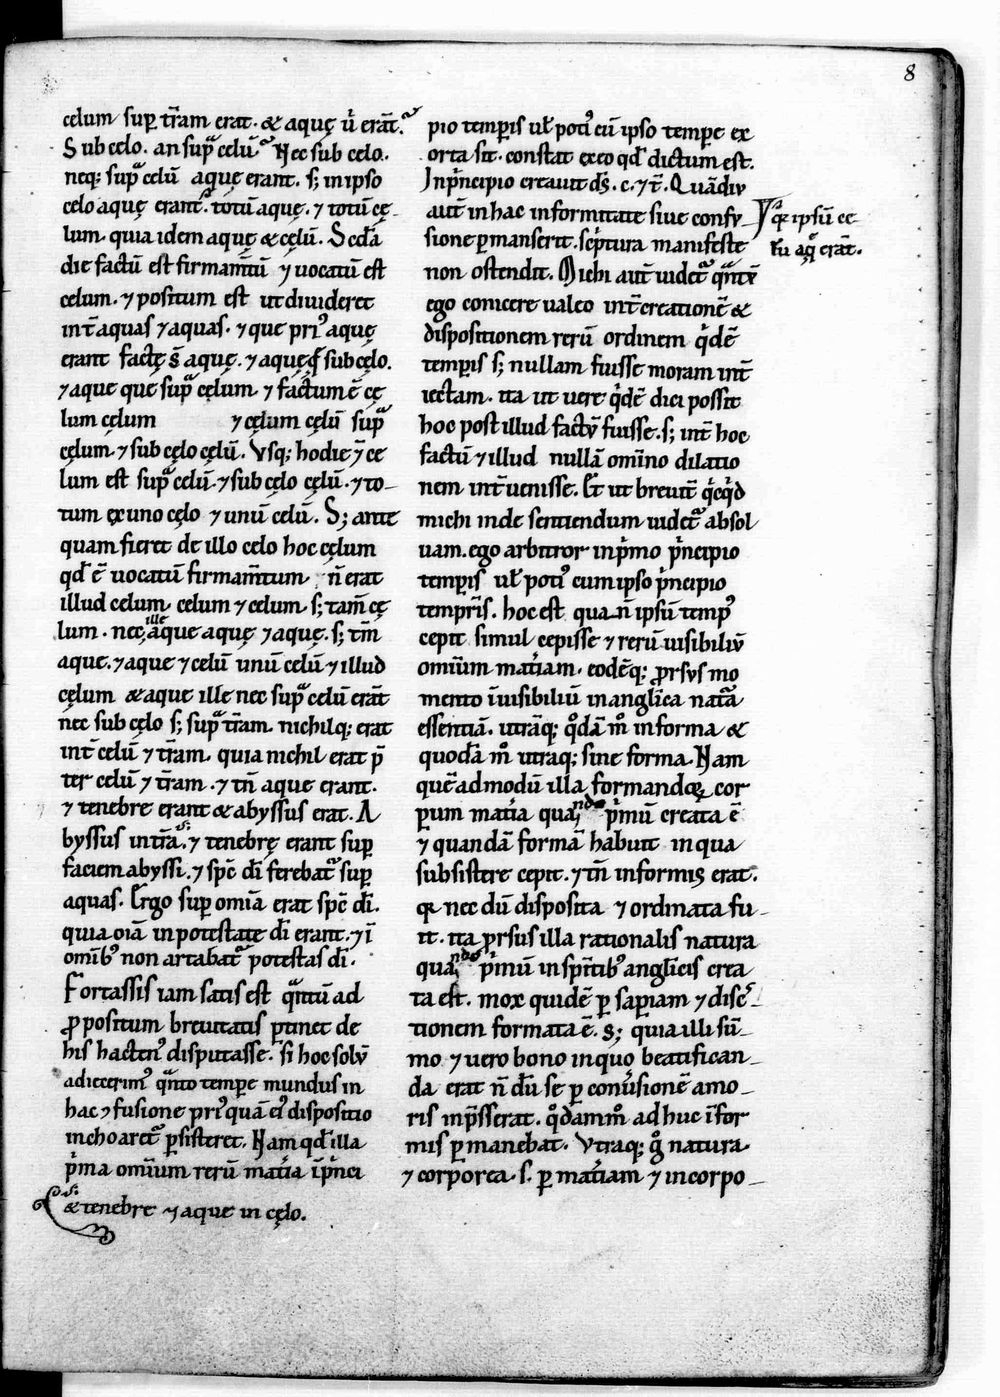 8
celum sup̱ tr̄am erat. & aquę ů erāt.
Sub celo. an supᵃ celū. Nec sub celo.
neq; supᵃ celū aque erant. s; in ipso
celo aquę erant. totū aque. ⁊ totū cę
lum. quia idem aquę & cęlū. Sc̄da
die factū est firmam̄tū ⁊ uocatū est
celum. ⁊ positum est ut diuideret
int̄ aquas ⁊ aquas. ⁊ que pri⁹ aquę
erant factę s̄ aquę. ⁊ aquę sub cęlo.
⁊ aque que supᵃ cęlum. ⁊ factum ē cę
lum cęlum ⁊ cęlum cęlū supᵃ
cęlum. ⁊ sub cęlo cęlū. Vsq; hodie ⁊ ce
lum est supᵃ celū. ⁊ sub cęlo cęlū. ⁊ to
tum ex uno cęlo ⁊ unū celū. S; ante
quam fieret de illo celo hoc cęlum
qd̄ ē uocatū firmam̄tum n̄ erat
illud celum celum ⁊ celum. s; tam̄ cę
lum. nec ille aque aquę ⁊ aque. s; tm̄
aque. ⁊ aque ⁊ celū unū celū ⁊ illud
cęlum & aque ille nec supᵃ celū erāt
nec sub cęlo s; supᵃ tr̄am. nichilq; erat
int̄ celū ⁊ tr̄am. quia nichil erat p̄
ter celū ⁊ tr̄am. ⁊ tn̄ aque erant.
⁊ tenebre erant & abyssus erat. A
byssus int̄ra. ⁊ tenebrę erant sup̱
faciem abyssi. ⁊ sp̄c dī ferebat᷑ sup̱
aquas. Ergo sup̱ omīa erat sp̄c dī.
quia oīa in potestate dī erant. ⁊ ī
omīb⁹ non artabat᷑ potestas dī.
Fortassis iam satis est qᵃntū ad
ꝓpositum breuitatis ꝑtinet de
his hacten⁹ disputasse. si hoc solū
adiecerim⁹ qᵃnto tempe mundus in
hac ꝯfusione pri⁹quā ei⁹ dispositio
inchoaret᷑ ꝑsisteret. Nam qd̄ illa
pⁱma omīum rerū matīa ī pⁱnci
& tenebre ⁊ aque in cęlo.
pio tempis ul̄ poti⁹ cū ipso tempe ex
orta sit. constat ex eo qd̄ dictum est.
In pⁱncipio creauit ds̄. c. ⁊ t̄. Quādiu
aut̄ in hac informitate siue confu
sione ꝑmanserit. scⁱptura manifeste
non ostendit. Michi aut̄ uidet᷑ qᵃntū
ego conicere ualeo int̄ creationē &
dispositionem rerū ordinem qⁱdē
tempis s; nullam fuisse moram int̄
iectam. ita ut uere qⁱdē dici possit
hoc post illud factū fuisse. s; int̄ hoc
factū ⁊ illud nullā omīno dilatio
nem int̄uenisse. Et ut breuit̄ qⁱcqⁱd
michi inde sentiendum uidet᷑ absol
uam. ego arbitror in pⁱmo pⁱncipio
tempis ul̄ poti⁹ cum ipso pⁱncipio
tempris. hoc est qua n̄ ipsū temp⁹
cepit simul cepisse ⁊ rerū uisibiliū
omīum matīam. eodēq; ꝓrsus mo
mento īuisibiliū in angl̄ica natᵃ
essentiā. utrāq; qᵒdā m̊ informa &
quodā m̊ utraq; sine forma. Nam
quē admodū illa formandoꝝ cor
pum matīa quando pⁱmū creata ē
⁊ quandā formā habuit in qua
subsistere cepit. ⁊ tn̄ informis erat.
qꝫ nec dū disposita ⁊ ordinata fu
it. ita ꝓrsus illa rationalis natura
quando pⁱmū in sp̄itib⁹ angl̄icis crea
ta est. mox quidē ꝑ sap̄iam ⁊ discⁱ
tionem formata ē. s; quia illi sū
mo ⁊ uero bono in quo beatifican
da erat n̄ dū se ꝑ conūsionē amo
ris inpⁱsserat. qᵒdammͦ ad huc īfor
mis ꝑmanebat. Vtraq; gͦ natura
⁊ corporea. s. ꝑ matīam ⁊ incorpo
qꝫ ipsū ce
lū aq̄ erāt.